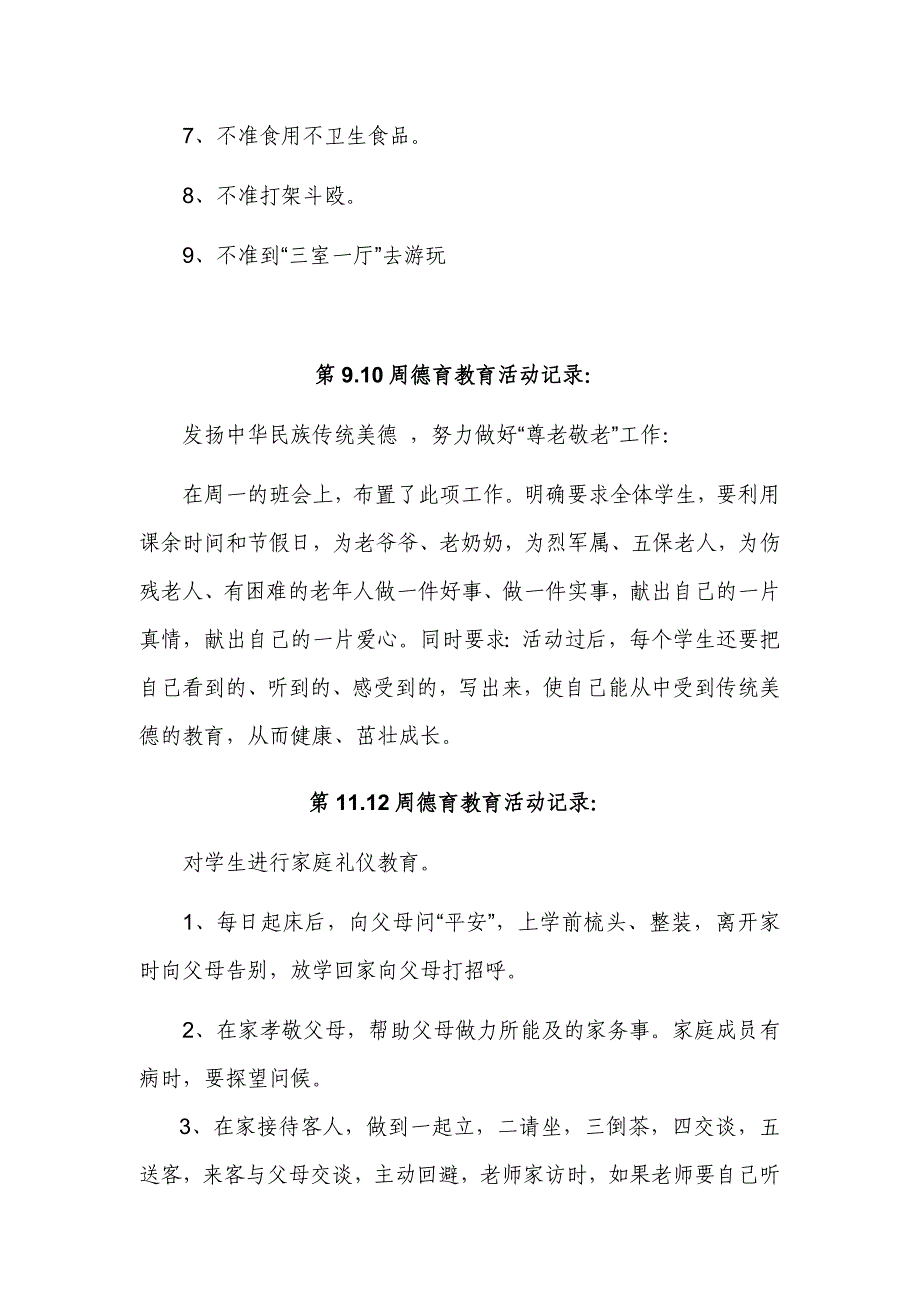 7、不准食用不卫生食品。
8、不准打架斗殴。
9、不准到“三室一厅”去游玩
第 9.10 周德育教育活动记录:
发扬中华民族传统美德 ，努力做好“尊老敬老”工作:
在周一的班会上，布置了此项工作。明确要求全体学生，要利用
课余时间和节假日，为老爷爷、老奶奶，为烈军属、五保老人，为伤
残老人、有困难的老年人做一件好事、做一件实事，献出自己的一片
真情，献出自己的一片爱心。同时要求: 活动过后，每个学生还要把
自己看到的、听到的、感受到的，写出来，使自己能从中受到传统美
德的教育，从而健康、茁壮成长。
第 11.12 周德育教育活动记录:
对学生进行家庭礼仪教育。
1、每日起床后，向父母问“平安”，上学前梳头、整装，离开家
时向父母告别，放学回家向父母打招呼。
2、在家孝敬父母，帮助父母做力所能及的家务事。家庭成员有
病时，要探望问候。
3、在家接待客人，做到一起立，二请坐，三倒茶，四交谈，五
送客，来客与父母交谈，主动回避，老师家访时，如果老师要自己听